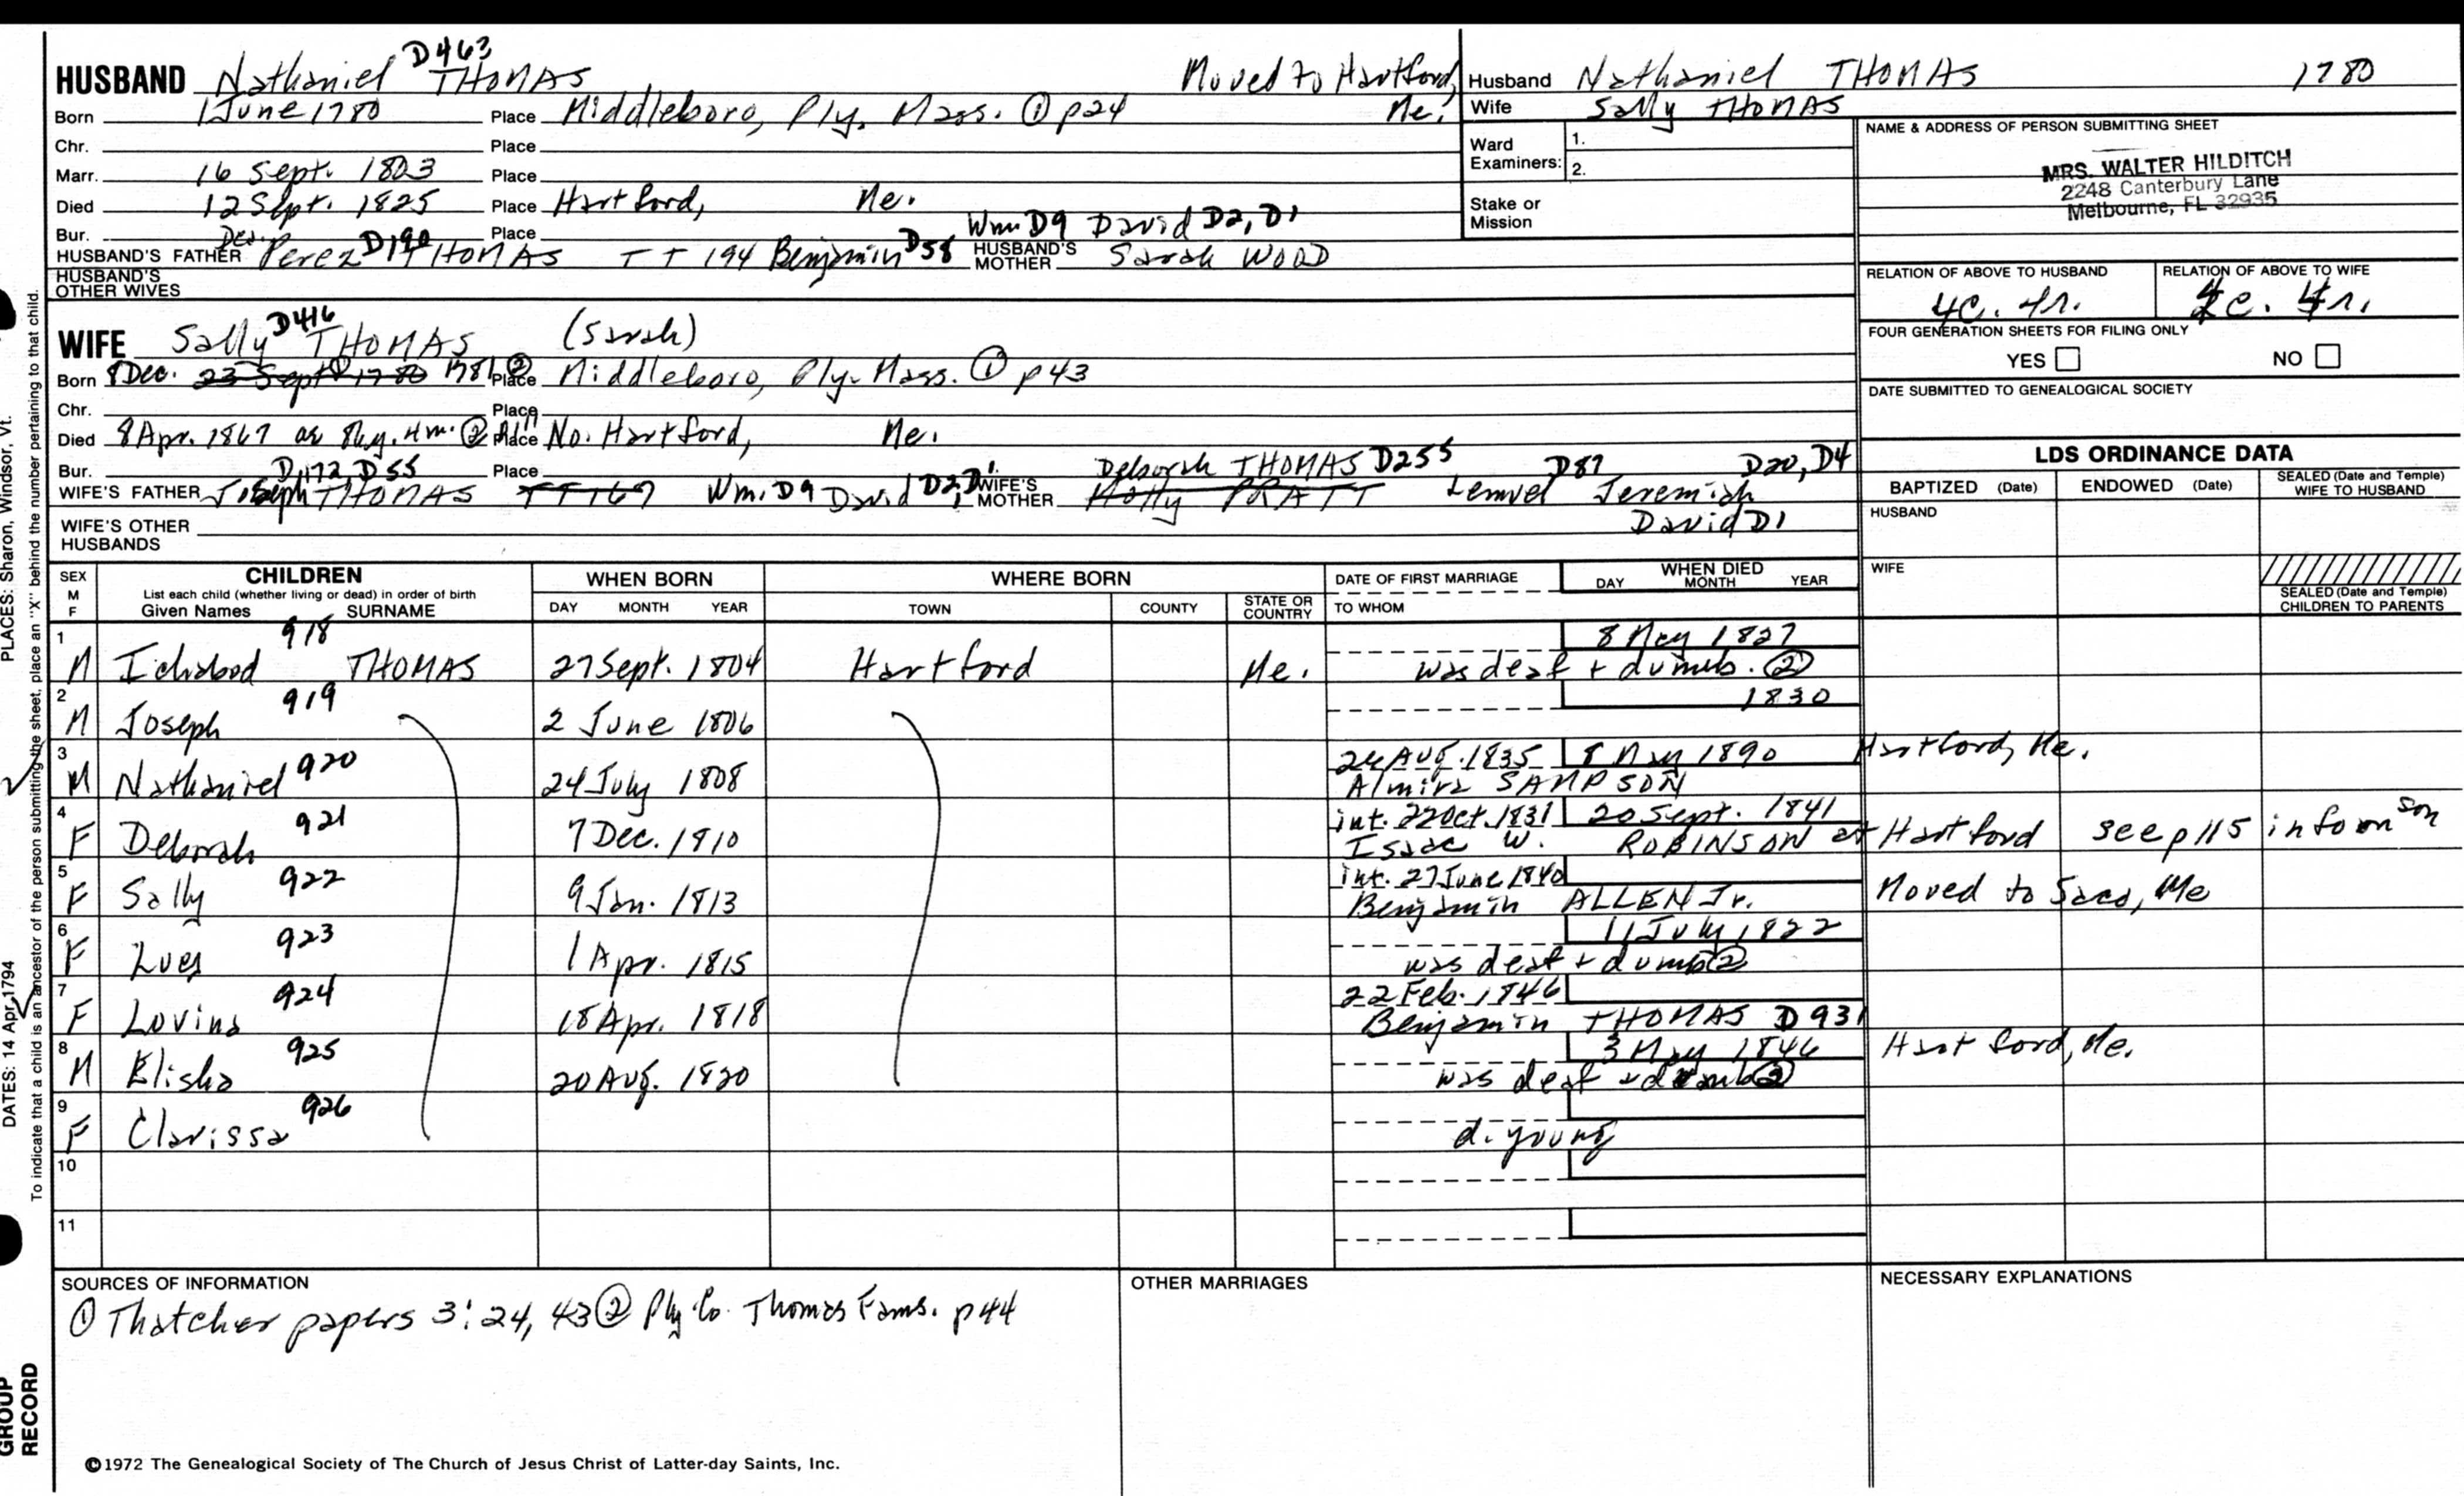 D463
HUSBAND Nathaniel THOMAS Moved to Hartford, Me.
Born 1 June 1780 Place Middleboro, Ply. Mass. ① p24
Chr. Place
Marr. 16 Sept. 1803 Place
Died 12 Sept. 1825 Place Hartford, Me.
Bur. Place Wm D9 David D2, D1
HUSBAND'S FATHER Perez D190 THOMAS TT 194 Benjamin D58 HUSBAND'S MOTHER Sarah WOOD
HUSBAND'S OTHER WIVES
D416
WIFE Sally THOMAS (Sarah)
Born 8 Dec. 23 Sept ① 1780 1781 ② Place Middleboro, Ply. Mass. ① p43
Chr. Place
Died 8 Apr. 1867 ae 84y. 4m. ② Place No. Hartford, Me.
Bur. Place
D172 D55 Deborah THOMAS D255 D87 D20, D4
WIFE'S FATHER Joseph THOMAS TT 167 Wm. D9 David D2, D1. WIFE'S MOTHER Holly PRATT Lemuel Jeremiah
David D1
WIFE'S OTHER HUSBANDS
Husband Nathaniel THOMAS 1780
Wife Sally THOMAS
Ward Examiners: 1.
2.
Stake or Mission
NAME & ADDRESS OF PERSON SUBMITTING SHEET
MRS. WALTER HILDITCH
2248 Canterbury Lane
Melbourne, FL 32935
RELATION OF ABOVE TO HUSBAND RELATION OF ABOVE TO WIFE
4c. 4r. 4r.
FOUR GENERATION SHEETS FOR FILING ONLY
YES NO
DATE SUBMITTED TO GENEALOGICAL SOCIETY
LDS ORDINANCE DATA
BAPTIZED (Date) ENDOWED (Date) SEALED (Date and Temple) WIFE TO HUSBAND
HUSBAND
WIFE
SEALED (Date and Temple) CHILDREN TO PARENTS
SEX M F CHILDREN List each child (whether living or dead) in order of birth Given Names SURNAME WHEN BORN DAY MONTH YEAR WHERE BORN TOWN COUNTY STATE OR COUNTRY DATE OF FIRST MARRIAGE TO WHOM WHEN DIED DAY MONTH YEAR
1 918 8 May 1827
M Ichabod THOMAS 27 Sept. 1804 Hartford Me. was deaf + dumb. ②
2 919 1830
M Joseph 2 June 1806
3 920 24 Aug. 1835 8 May 1890 Hartford, Me.
M Nathaniel 24 July 1808 Almira SAMPSON
4 921 int. 22 Oct. 1831 20 Sept. 1841
F Deborah 7 Dec. 1810 Isaac W. ROBINSON at Hartford see p115 info on son
5 922 int. 27 June 1840
F Sally 9 Jan. 1813 Benjamin ALLEN Jr. Moved to Saco, Me
6 923 11 July 1822
F Lucy 1 Apr. 1815 was deaf + dumb ②
7 924 22 Feb. 1846
F Lovina 18 Apr. 1818 Benjamin THOMAS D931
8 925 3 May 1846 Hartford, Me.
M Elisha 20 Aug. 1820 was deaf + dumb ②
9 926
F Clarissa d. young
10
11
SOURCES OF INFORMATION
① Thatcher papers 3:24, 43 ② Ply Co. Thomas Fams. p44
OTHER MARRIAGES
NECESSARY EXPLANATIONS
©1972 The Genealogical Society of The Church of Jesus Christ of Latter-day Saints, Inc.
PLACES: Sharon, Windsor, Vt.
DATES: 14 Apr 1794
To indicate that a child is an ancestor of the person submitting the sheet, place an "X" behind the number pertaining to that child.
GROUP
RECORD